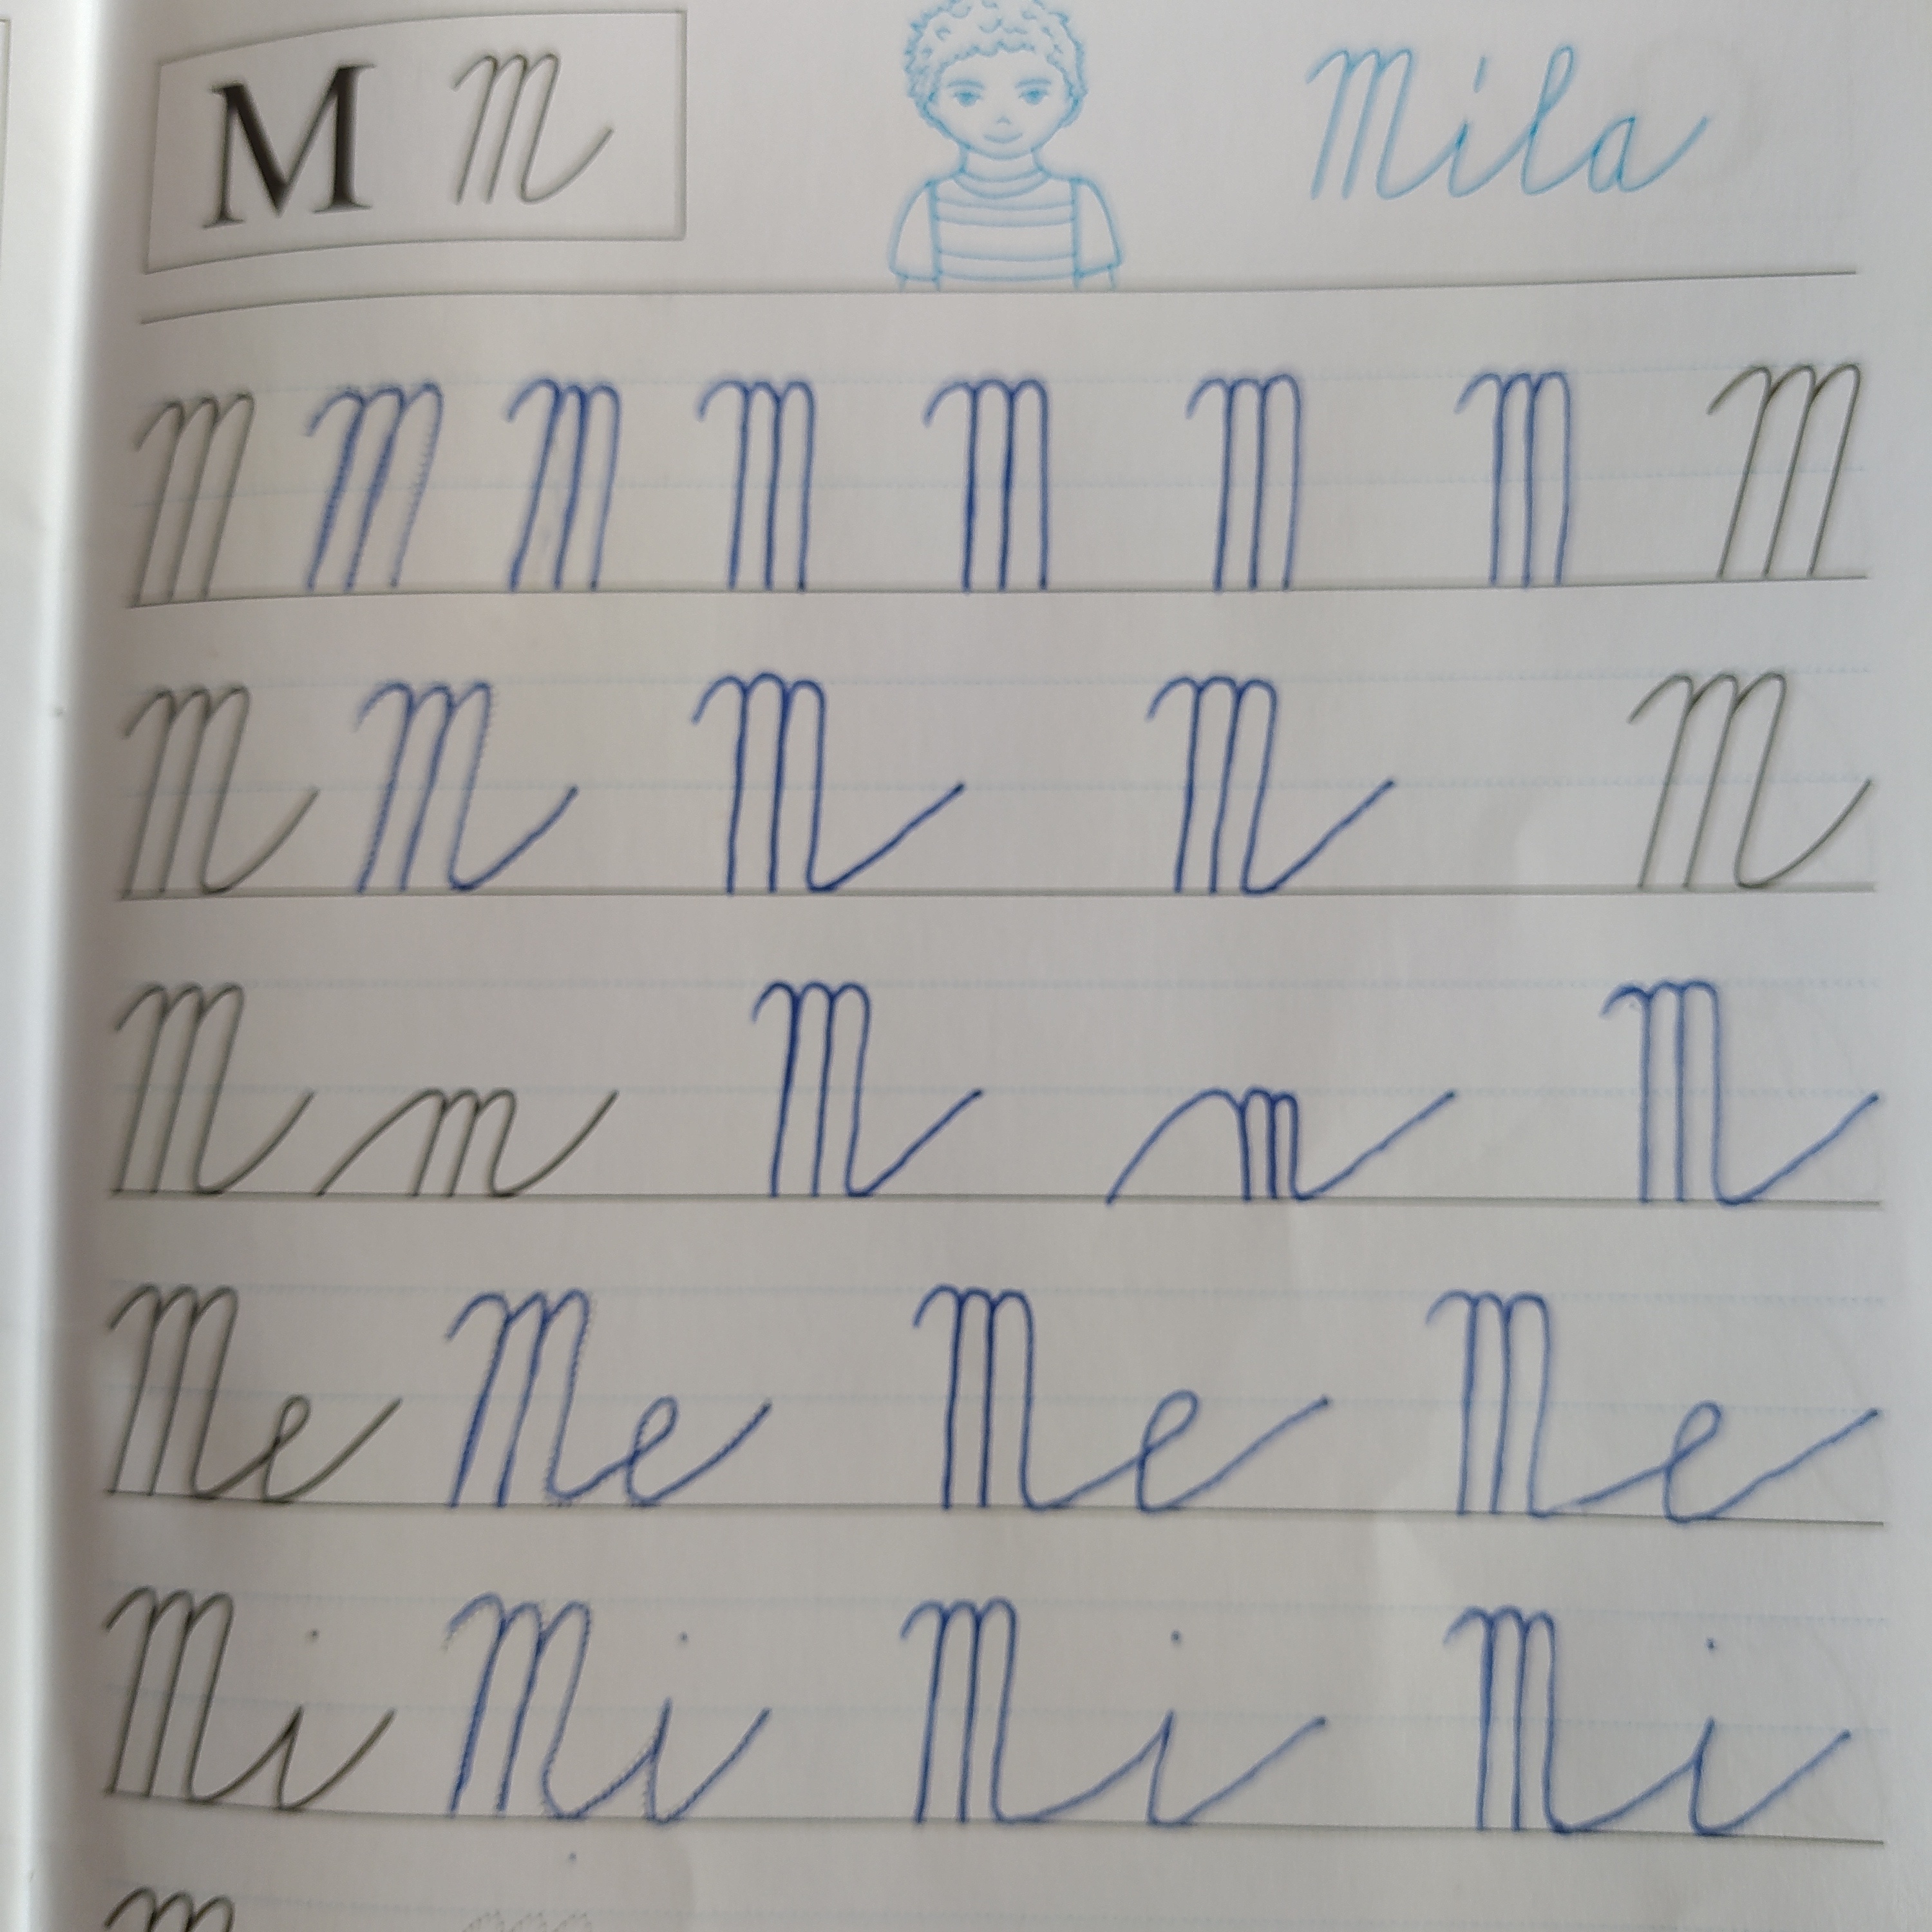 M m Mila
M M M M M M M M
M M M M M
M m M m M
Me Me Me Me
Mi Mi Mi Mi